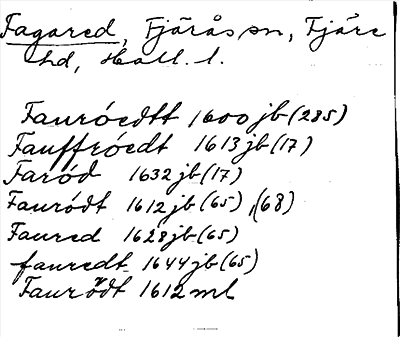 Fagared, Fjärås sn, Fjäre
hd, Hall. l.
Fauróedtt 1600 jb (285)
Fauffróedt 1613 jb (17)
Faród 1632 jb (17)
Fauródt 1612 jb (65), (68)
Faured 1628 jb (65)
fauredt 1644 jb (65)
Faurödt 1612 ml